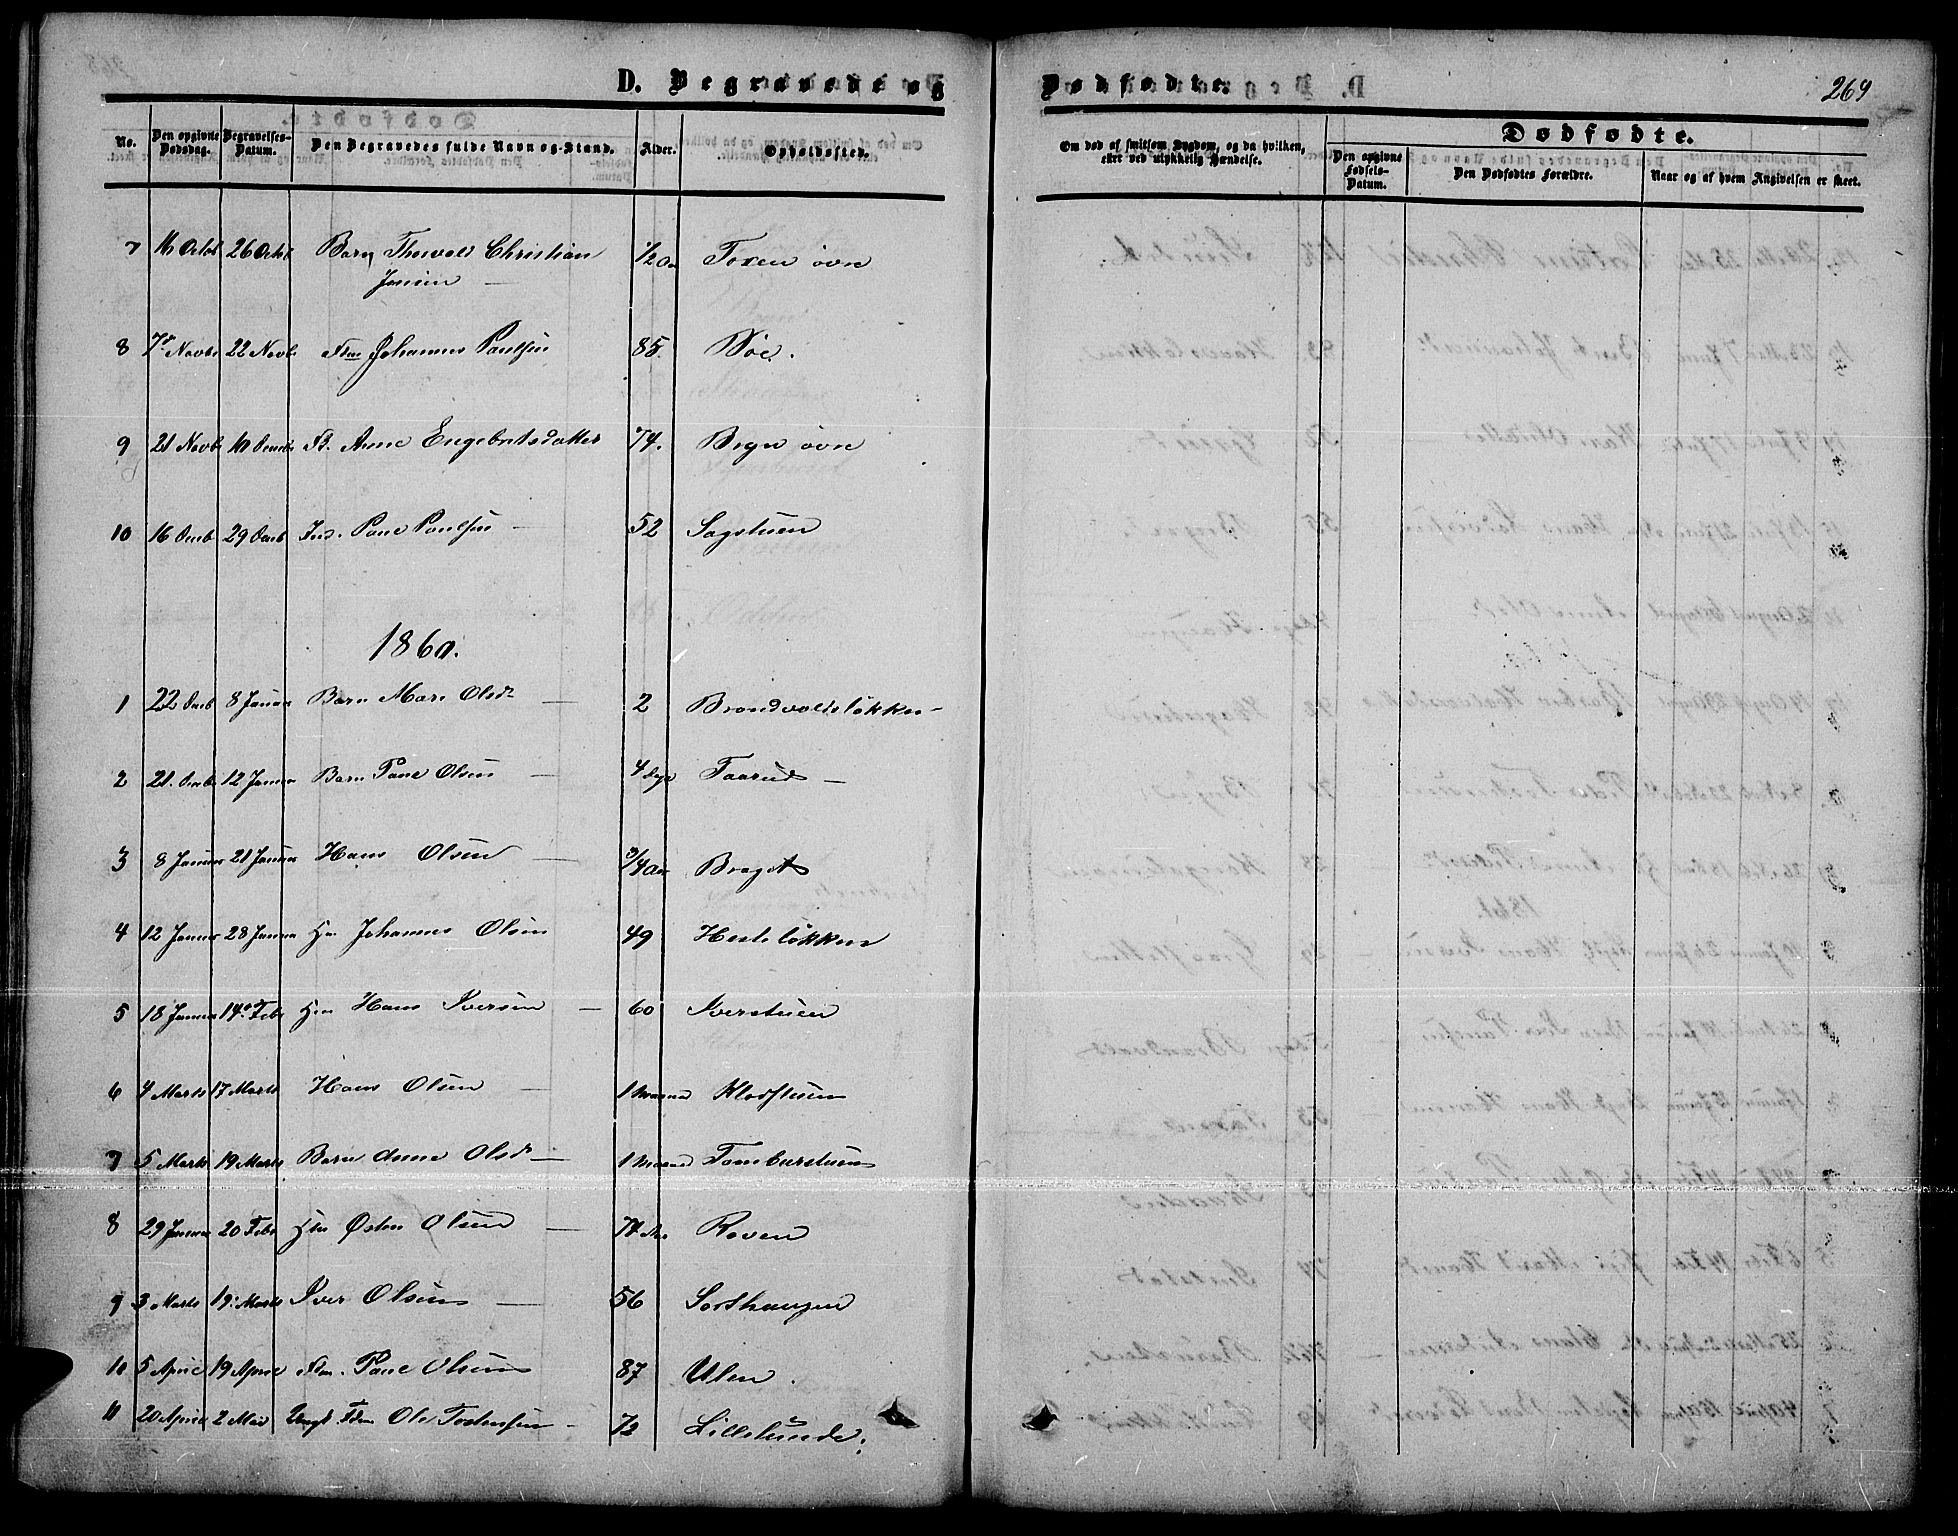 D. Begravede og Dødfødte.
269
No. Den opgivne Dødsdag. Begravelses-Datum. Den Begravedes fulde Navn og Stand. Alder. Opholdssted.
Om død af smitsom Sygdom, og da hvilken, eller ved ulykkelig Hændelse.
Dødfødte.
Den opgivne Fødsels-Datum. Den Dødfødtes Forældre. Naar og af hvem Angivelsen er skeet.
7 16 Octob 26 Octob Barn Thorvald Christian 1/2 Aar Foxen øvre
Jensen —
8 7de Novbr 22 Novb Fdm Johannes Paulsen 85. Bøe.
9 21 Novb 10 Decmb Fk. Anne Engebretsdatter 74. Begn øvre
10 16 Decb 29 Decb Ind. Paul Paulsen — 52 Sagstuen
1860.
1 22 Decb 8 Januar Barn Mari Olsdr — 2 Brandvoldsløkken —
2 21. Decb 12 Januar Barn Paul Olsen — 4 dage Taarud —
3 8 Januar 21 Januar Hans Olsen — 3/4 Aar
4 12 Januar 28 Januar Hm Johannes Olsen 49 Hesteløkken
5 18 Januar 14de Febr Hm Hans Iversen — 60 Iverstuen
6 4 Marts 17 Marts Hans Olsen — 1 Maaned Klodstuen
7 5 Marts 19 Marts Barn Anne Olsdr — 1 Maaned Tamburstuen
8 29 Januar 20 Febr Hm Østen Olsen — 74 Aar Roven
9 3 Marts 19. Marts Iver Olsen — 56 Sorthaugen
10 5 April 19 April Fdm. Paul Olsen 87 Ulen.
11 20 April 2 Mai Ungk. Fdm Ole Tostensen — 72 Lillelunde.